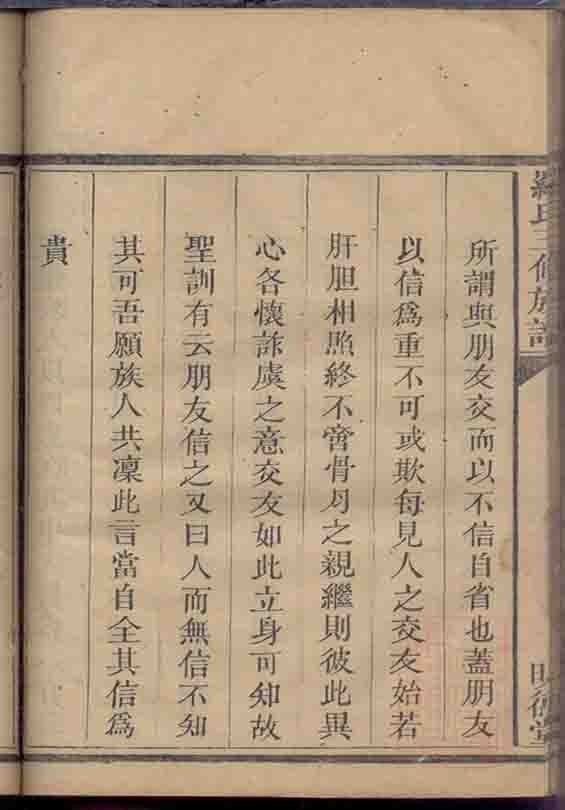 羅氏三修族譜
明德堂
所謂與朋友交而以不信自省也蓋朋友
以信爲重不可或欺每見人之交友始若
肝胆相照終不啻骨月之親繼則彼此異
心各懷詐虞之意交友如此立身可知故
聖訓有云朋友信之又曰人而無信不知
其可吾願族人共凜此言當自全其信爲
貴